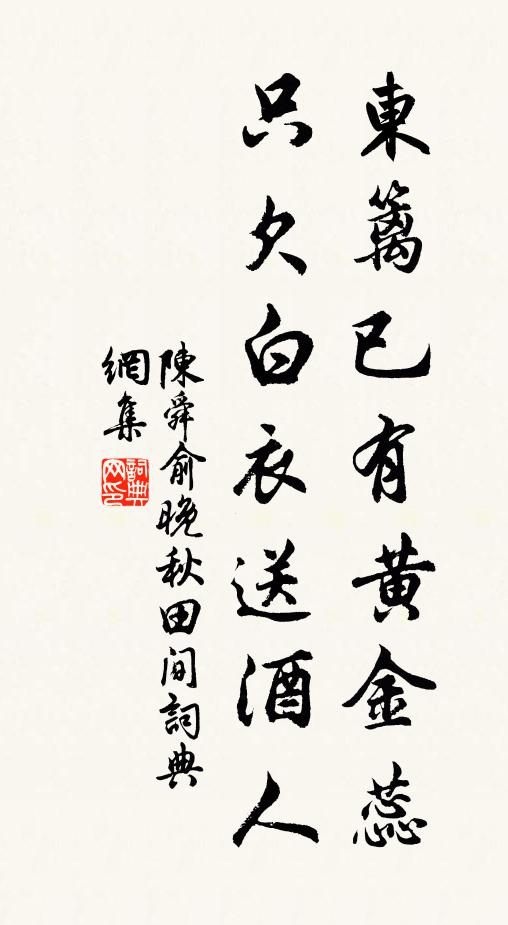 東籬已有黃金蕊
只欠白衣送酒人
陳舜俞晚秋田間詞典
網集
詞典
网印